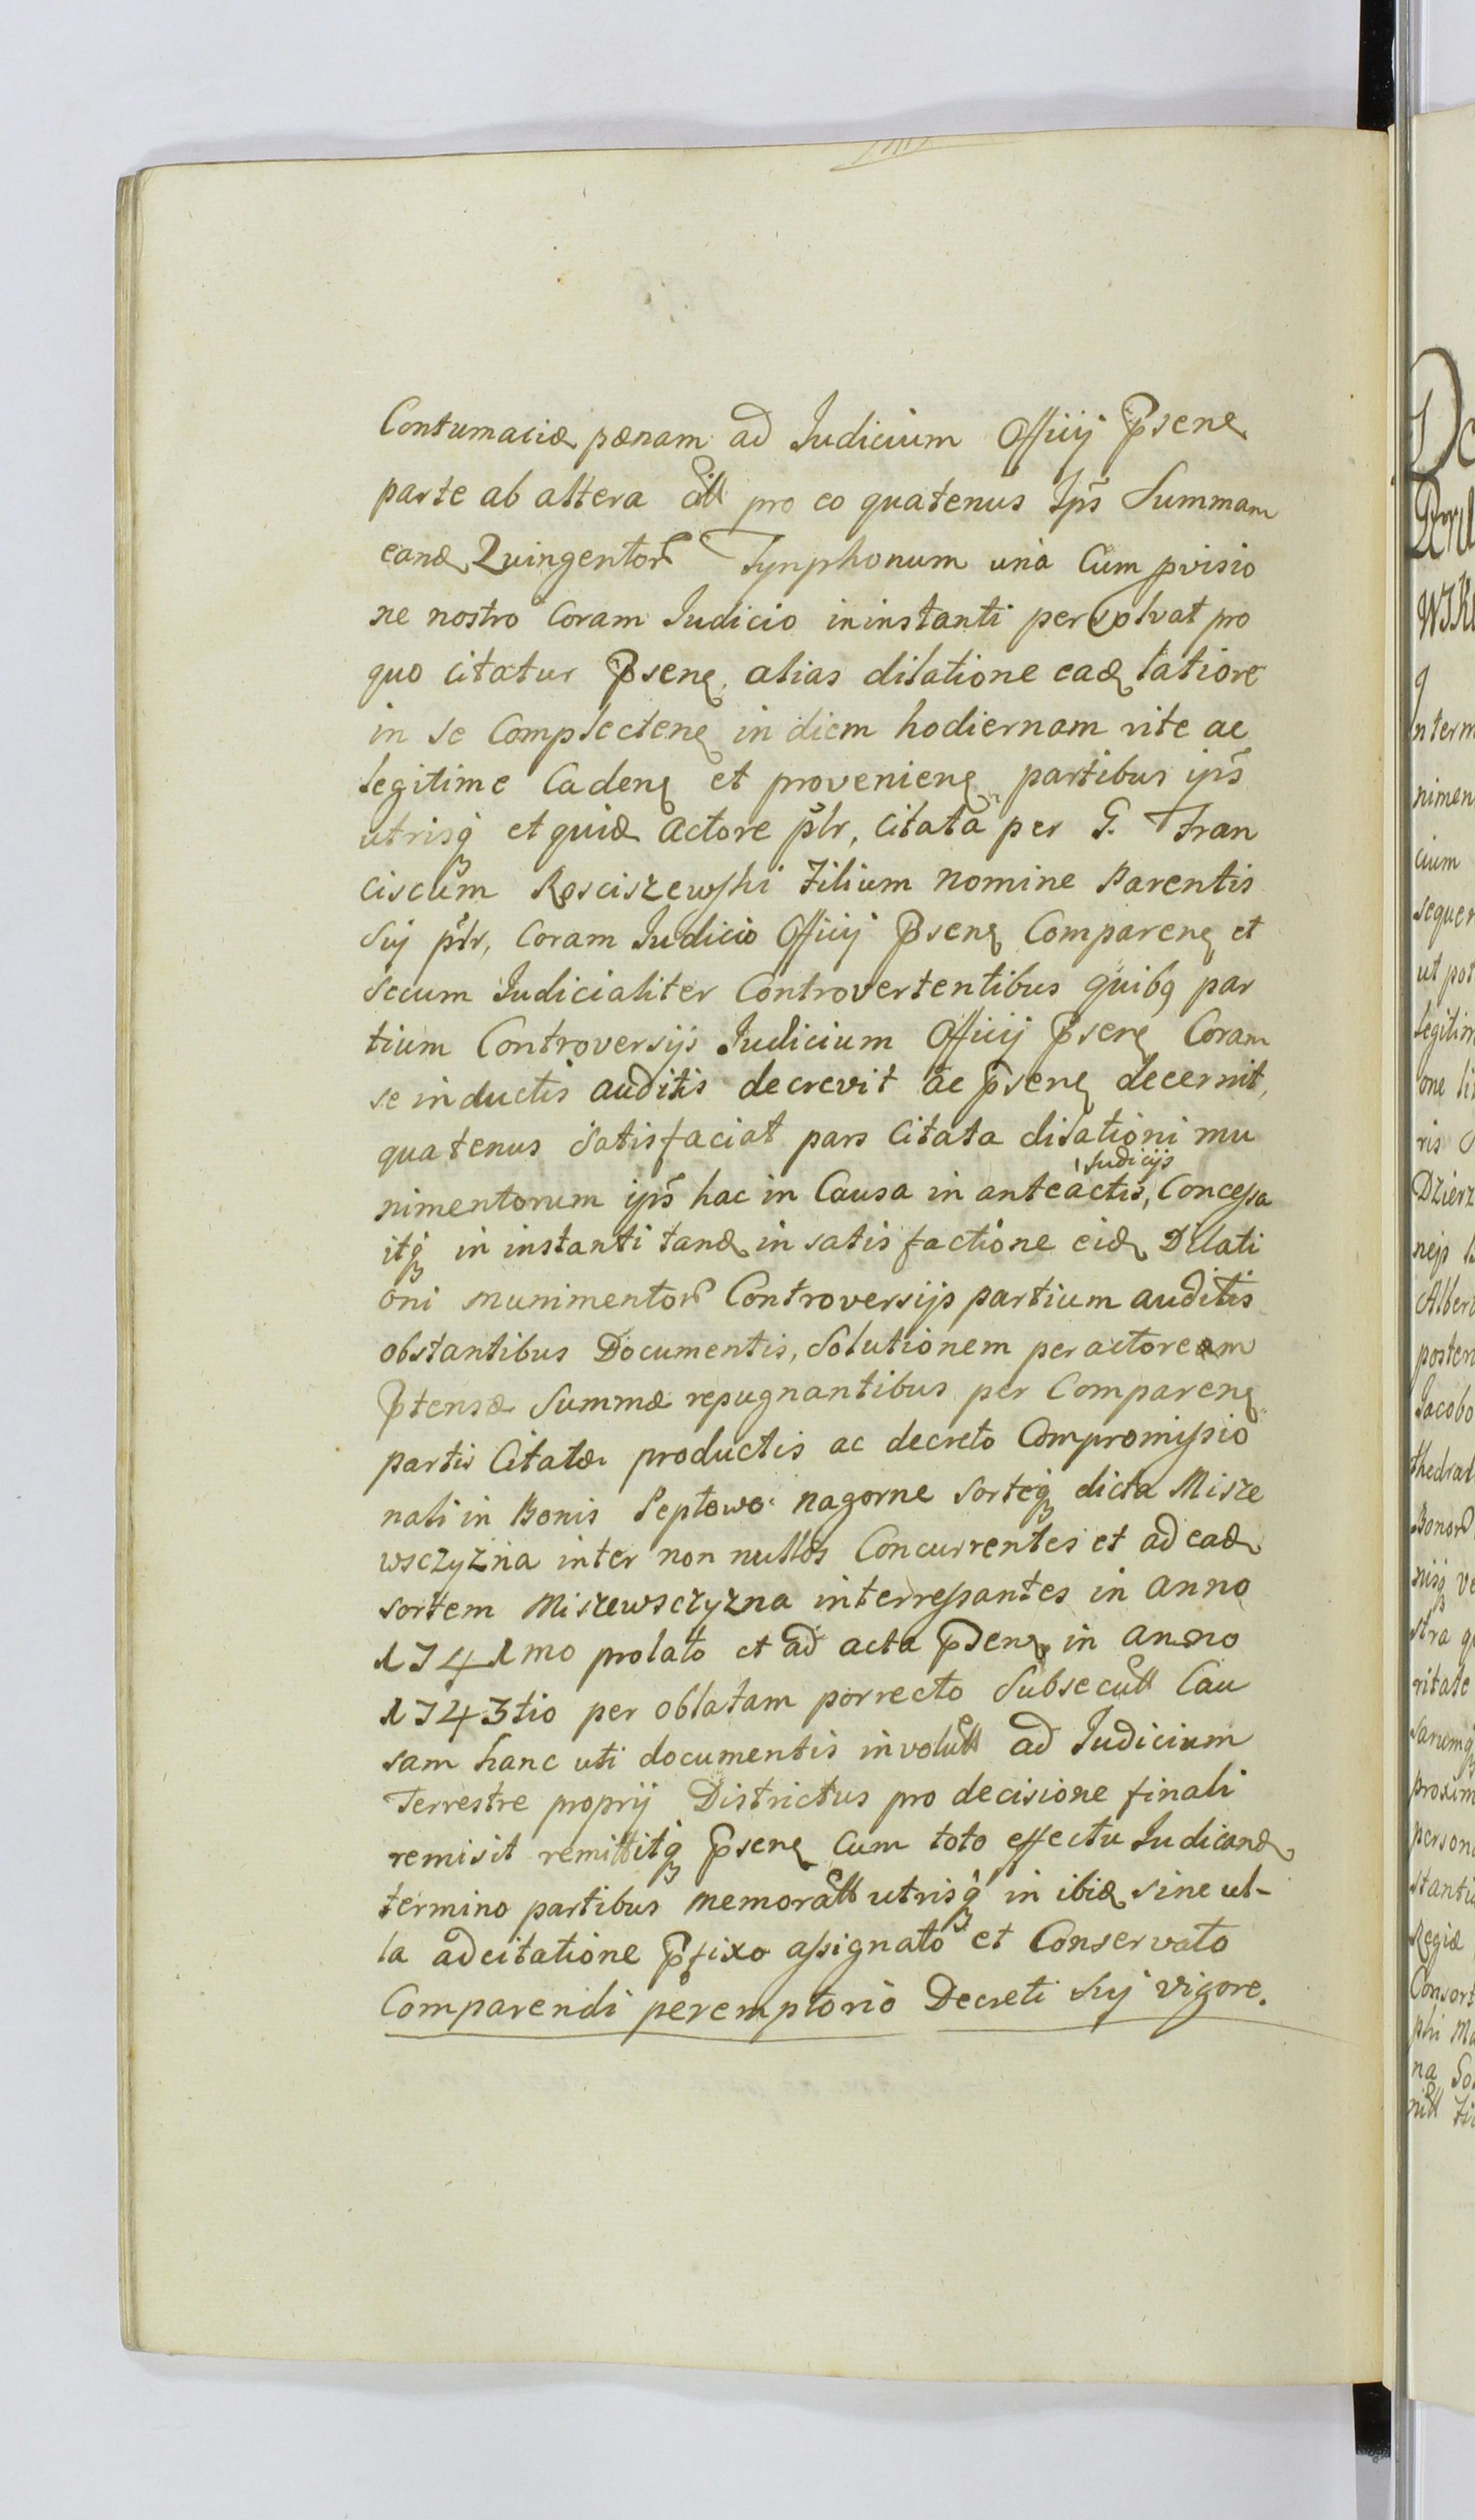 Contumaciæ pænam ad Judicium Officij P̃sens
parte ab altera Citt pro eo quatenus Ips̃ Summam
eand Quingentor Tynphonum una Cum p̃visio
ne nostro Coram Judicio ininstanti persolvat pro
quo citatur P̃sens, alias dilatione ead latiore
in se Complectens in diem hodiernam rite ac
legitime Cadens et proveniens partibus ips̃
utrisq et quid Actore p̃lr, Citata per G. Fran
ciscum Rosciszewski Filium nomine Parentis
Sui p̃lr, Coram Judicio Officij P̃sens Comparens et
secum Judicialiter Controvertentibus quibq par
tium Controversijs Judicium Officij P̃sens Coram
se inductis auditis decrevit ac P̃sens decernit,
quatenus Satisfaciat pars Citata dilationi mu
Judicijs
nimentorum ips̃ hac in Causa in anteactis, Concessa
itq in instanti tand in satisfactione eid Dilati
oni munimentor Controversijs partium auditis
obstantibus Documentis, Solutionem per actoream
P̃tensæ Summæ repugnantibus per Comparens
partis Citatæ productis ac decreto Compromissio
nali in Bonis Septowo nagorne Sorteq dicta Misze
wsczyzna inter non nullos Concurrentes et ad ead
sortem Miszewsczyzna interressantes in anno
1741mo prolato et ad acta P̃sens in anno
1743tio per oblatam porrecto Subsecutt Cau
sam hanc uti documentis involutt ad Judicium
Terrestre proprij Districtus pro decisione finali
remisit remittitq P̃sens Cum toto effectu Judicand
termino partibus memoratt utrisq in ibid sine ul-
la adcitatione P̃fixo assignato et Conservato
Comparendi peremptorio Decreti Sui vigore.